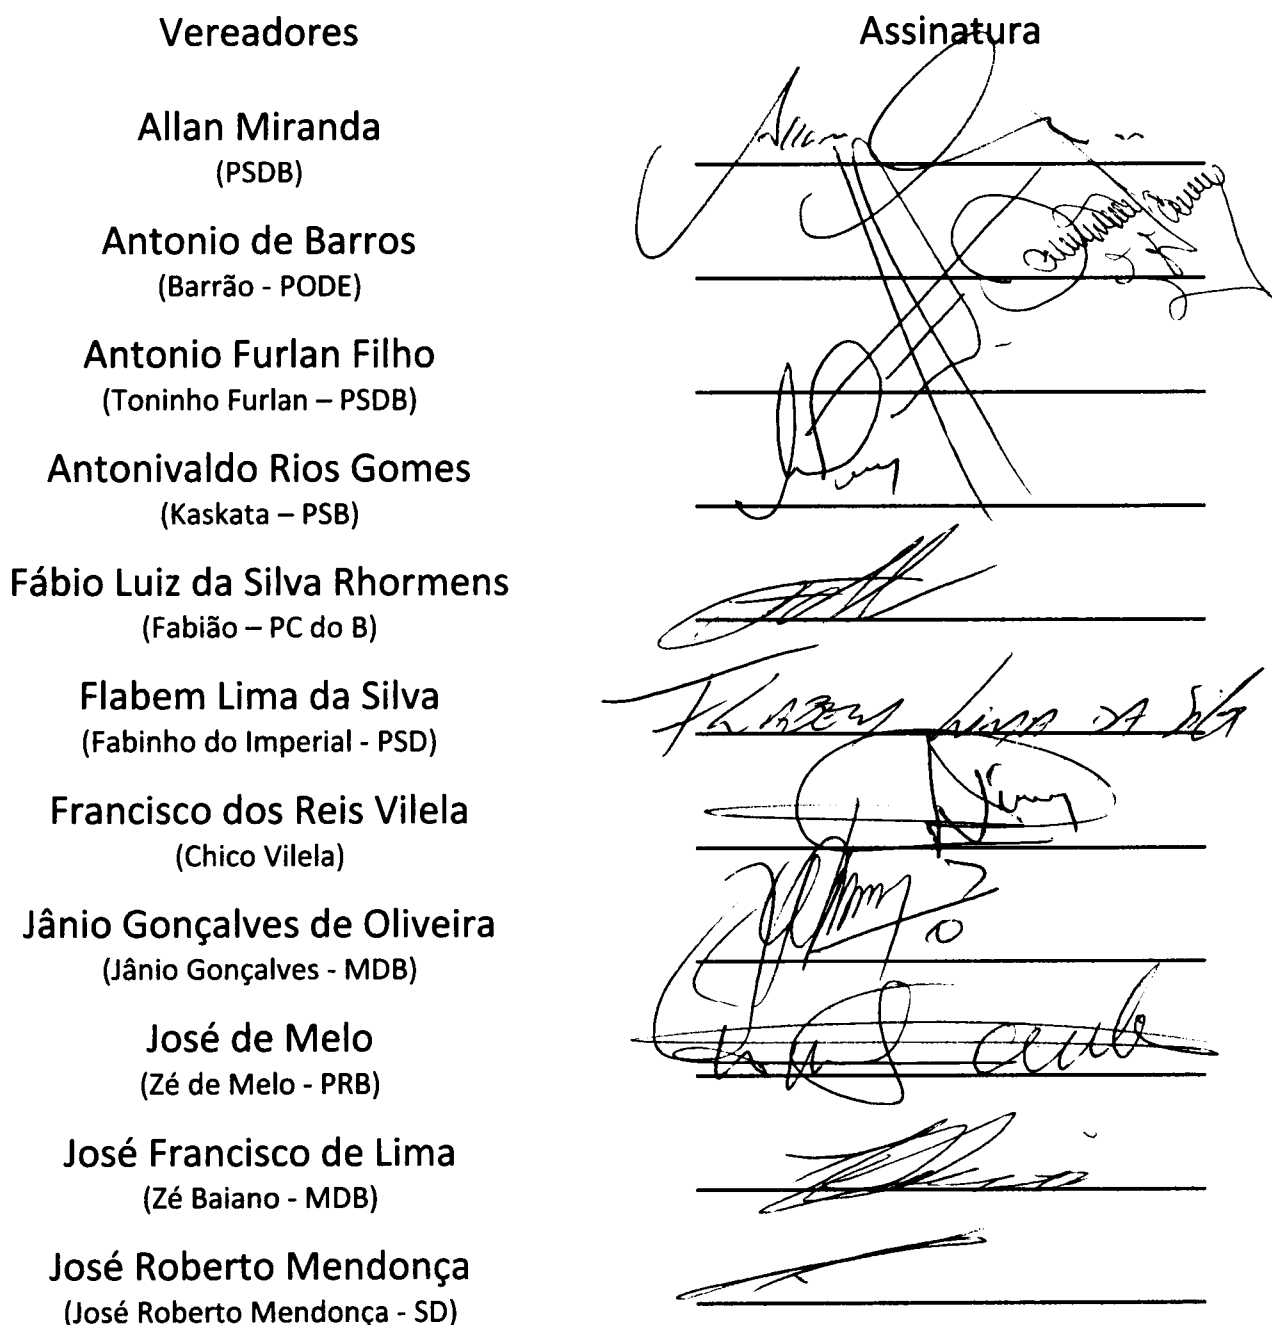 Vereadores Assinatura
Allan Miranda
(PSDB)
Antonio de Barros
(Barrão - PODE)
Antonio Furlan Filho
(Toninho Furlan – PSDB)
Antonivaldo Rios Gomes
(Kaskata – PSB)
Fábio Luiz da Silva Rhormens
(Fabião – PC do B)
Flabem Lima da Silva FLABEM LIMA DA SILVA
(Fabinho do Imperial - PSD)
Francisco dos Reis Vilela
(Chico Vilela)
Jânio Gonçalves de Oliveira
(Jânio Gonçalves - MDB)
José de Melo
(Zé de Melo - PRB)
José Francisco de Lima
(Zé Baiano - MDB)
José Roberto Mendonça
(José Roberto Mendonça - SD)